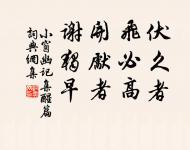 伏久者
飛必高
開獻者
謝獨早
小窗幽記集醒篇
詞典網集